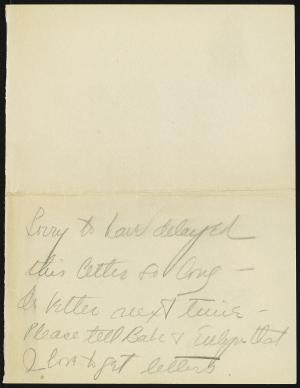 Sorry to have delayed
this letter so long –
Do better next time –
Please tell Babe & Evelyn that
I love to get letters